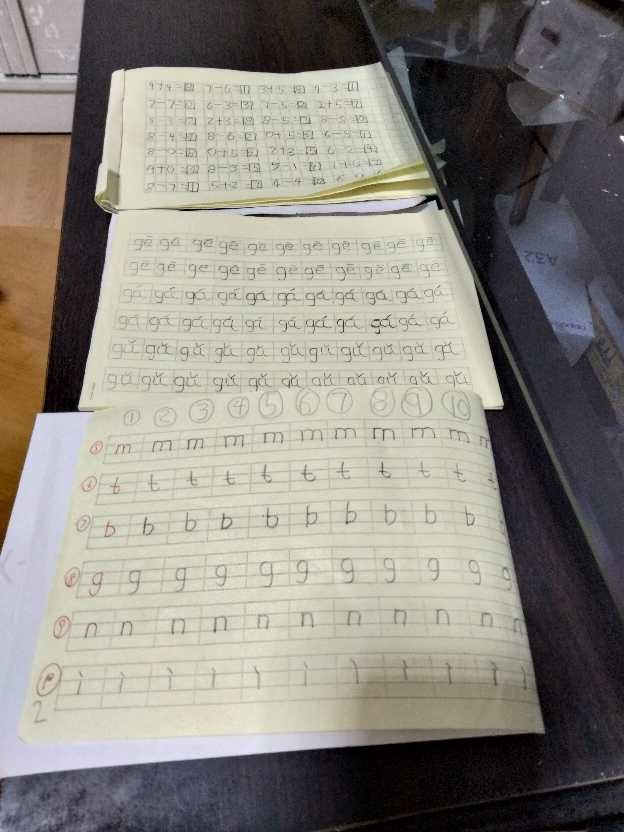 4+4=8 7-6=1 3+5=8 4-3=1
7-7=0 6-3=3 7-5=2 2+5=7
2+3=5
8-4=4 8-6=2 0+5=5 6-5=1
8-0=8 0+5=5 2+3=5 6-2=4
8-3=5 5-1=4
8-7=1 5+2=7 4-4=0
gē gē gē gē gē gē gē gē gē gē gē
gē gē gē gē gē gē gē gē gē gē gē
gá gá gá gá gá gá gá gá gá gá gá
gá gá gá gá gá gá gá gá gá gá gá
gǎ gǎ gǎ gǎ gǎ gǎ gǎ gǎ gǎ gǎ gǎ
gǎ gǎ gǎ gǎ gǎ gǎ gǎ gǎ gǎ gǎ gǎ
① ② ③ ④ ⑤ ⑥ ⑦ ⑧ ⑨ ⑩
m m m m m m m m m m m
⑥ t t t t t t t t t t t
⑦ b b b b b b b b b b
⑧ g g g g g g g g g g g
⑨ n n n n n n n n n n n
⑩ i i i i i i i i i i i
2
A32